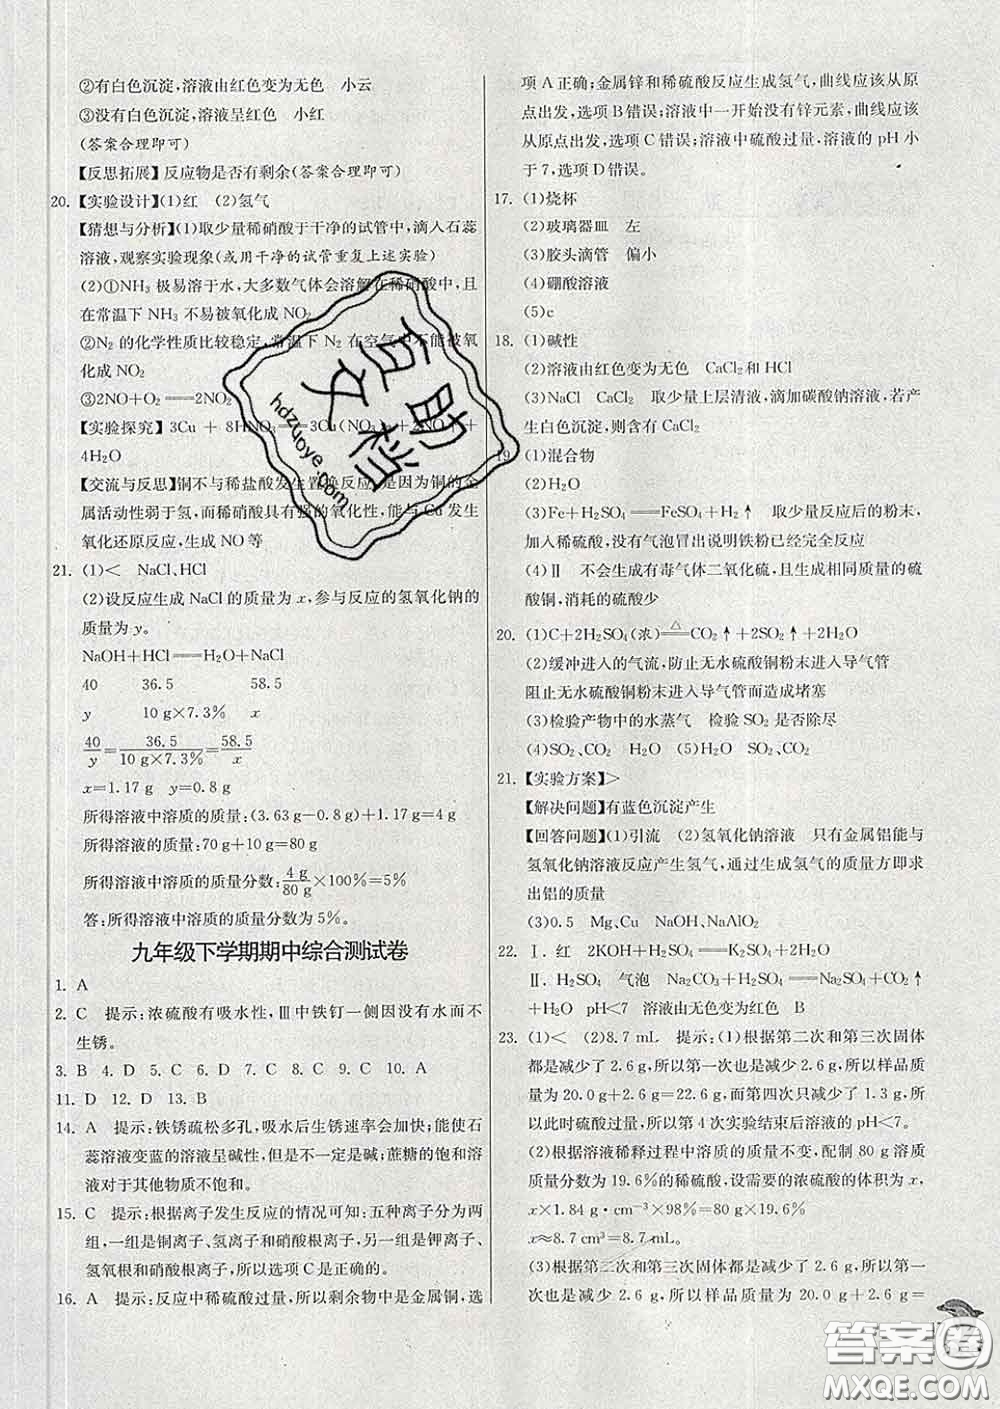 ②有白色沉淀,溶液由红色变为无色　小云
③没有白色沉淀,溶液呈红色　小红
(答案合理即可)
【反思拓展】反应物是否有剩余(答案合理即可)
20. 【实验设计】(1)红　(2)氢气
【猜想与分析】(1)取少量稀硝酸于干净的试管中,滴入石蕊
溶液,观察实验现象(或用干净的试管重复上述实验)
(2)①NH₃ 极易溶于水,大多数气体会溶解在稀硝酸中,且
在常温下 NH₃ 不易被氧化成 NO₂
②N₂ 的化学性质比较稳定,常温下 N₂ 在空气中不能被氧
化成 NO₂
③2NO+O₂══2NO₂
【实验探究】3Cu + 8HNO₃══3Cu(NO₃)₂ + +
4H₂O
【交流与反思】铜不与稀盐酸发生置换反应,是因为铜的金
属活动性弱于氢,而稀硝酸具有强的氧化性,能与 Cu 发生
氧化还原反应,生成 NO 等
21. (1)<　NaCl、HCl
(2)设反应生成 NaCl 的质量为 x,参与反应的氢氧化钠的
质量为 y。
NaOH+HCl══H₂O+NaCl
40　36.5　58.5
y　10 g×7.3%　x
40/y=36.5/(10 g×7.3%)=58.5/x
x=1.17 g　y=0.8 g
所得溶液中溶质的质量:(3.63 g-0.8 g)+1.17 g=4 g
所得溶液的质量:70 g+10 g=80 g
所得溶液中溶质的质量分数:4 g/80 g×100%=5%
答:所得溶液中溶质的质量分数为 5%。
九年级下学期期中综合测试卷
1. A
2. C　提示:浓硫酸有吸水性,Ⅲ中铁钉一侧因没有水而不
生锈。
3. B　4. D　5. C　6. D　7. D　8. C　9. C　10. A
11. D　12. D　13. B
14. A　提示:铁锈疏松多孔,吸水后生锈速率会加快;能使石
蕊溶液变蓝的溶液呈碱性,但是不一定是碱;蔗糖的饱和溶
液对于其他物质不饱和。
15. C　提示:根据离子发生反应的情况可知:五种离子分为两
组,一组是铜离子、氢离子和硝酸根离子,另一组是钾离子、
氢氧根和硝酸根离子,所以选项 C 是正确的。
16. A　提示:反应中稀硫酸过量,所以剩余物中是金属铜,选
项 A 正确;金属锌和稀硫酸反应生成氢气,曲线应该从原
点出发,选项 B 错误;溶液中一开始没有锌元素,曲线应该
从原点出发,选项 C 错误;溶液中硫酸过量,溶液的 pH 小
于 7,选项 D 错误。
17. (1)烧杯
(2)玻璃器皿　左
(3)胶头滴管　偏小
(4)硼酸溶液
(5)c
18. (1)碱性
(2)溶液由红色变为无色　CaCl₂ 和 HCl
(3)NaCl　CaCl₂　取少量上层清液,滴加碳酸钠溶液,若产
生白色沉淀,则含有 CaCl₂
19. (1)混合物
(2)H₂O
(3)Fe+H₂SO₄══FeSO₄+H₂↑　取少量反应后的粉末,
加入稀硫酸,没有气泡冒出说明铁粉已经完全反应
(4)Ⅱ　不会生成有毒气体二氧化硫,且生成相同质量的硫
酸铜,消耗的硫酸少
20. (1)C+2H₂SO₄(浓)══△CO₂↑+2SO₂↑+2H₂O
(2)缓冲进入的气流,防止无水硫酸铜粉末进入导气管
阻止无水硫酸铜粉末进入导气管而造成堵塞
(3)检验产物中的水蒸气　检验 SO₂ 是否除尽
(4)SO₂、CO₂　H₂O　(5)H₂O　SO₂、CO₂
21. 【实验方案】>
【解决问题】有蓝色沉淀产生
【回答问题】(1)引流　(2)氢氧化钠溶液　只有金属铝能与
氢氧化钠溶液反应产生氢气,通过生成氢气的质量方即求
出铝的质量
(3)0.5　Mg、Cu　NaOH、NaAlO₂
22. Ⅰ. 红　2KOH+H₂SO₄══K₂SO₄+2H₂O
Ⅱ. H₂SO₄　气泡　Na₂CO₃+H₂SO₄══Na₂SO₄+CO₂↑
+H₂O　pH<7　溶液由无色变为红色　B
23. (1)<　(2)8.7 mL　提示:(1)根据第二次和第三次固体
都是减少了 2.6 g,所以第一次也是减少了 2.6 g,所以样品质
量为 20.0 g+2.6 g=22.6 g,而第四次只减少了 1.3 g,所
以此时硫酸过量,所以第 4 次实验结束后溶液的 pH<7。
(2)根据溶液稀释过程中溶质的质量不变,配制 80 g 溶质
质量分数为 19.6%的稀硫酸,设需要的浓硫酸的体积为 x,
x×1.84 g·cm⁻³×98%=80 g×19.6%
x≈8.7 cm³=8.7 mL。
(3)根据第二次和第三次固体都是减少了 2.6 g,所以第一
次也是减少了 2.6 g,所以样品质量为 20.0 g+2.6 g=
直助
文档
hdzuoye.com
答案圈
MXQE.COM